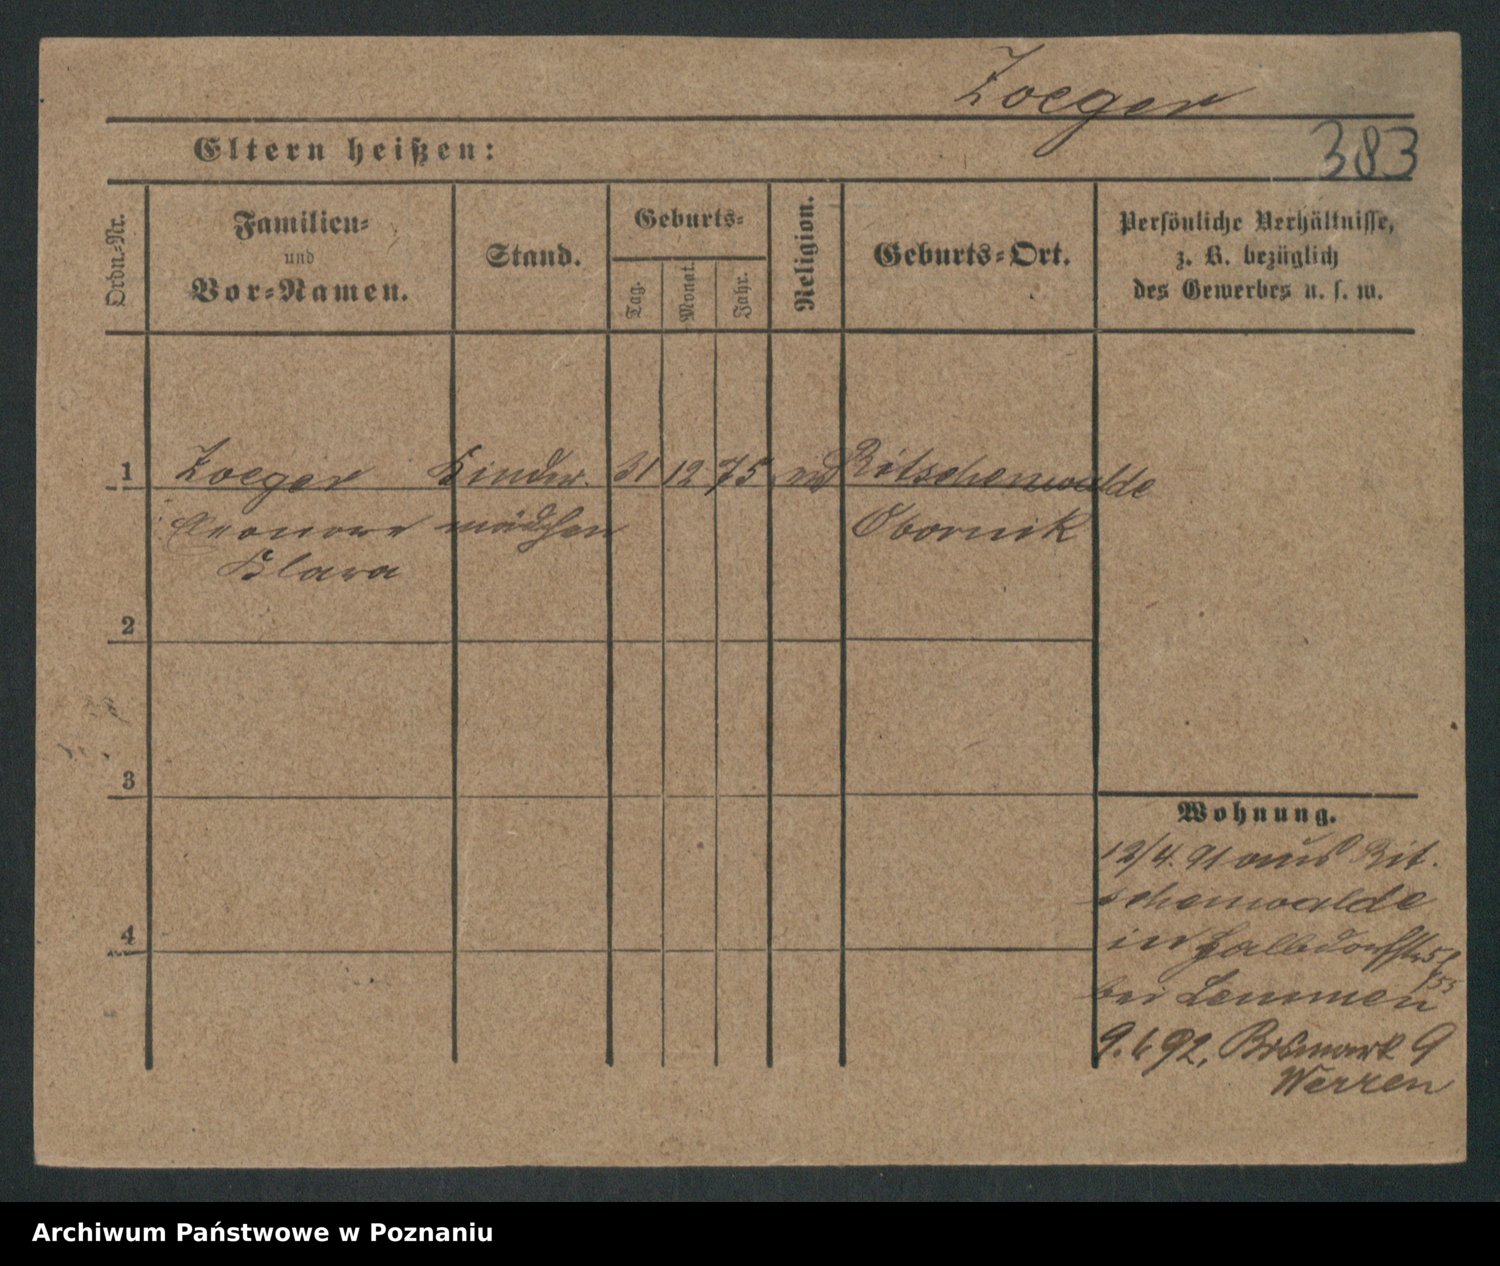 Zoeger
383
Eltern heißen:
Ordn.-Nr.
Familien-
und
Vor-Namen.
Stand.
Geburts-
Tag.
Monat.
Jahr.
Religion.
Geburts-Ort.
Persönliche Verhältnisse,
z. B. bezüglich
des Gewerbes u. s. w.
1 Zoeger Kinder. 31 12 75 Ritschenwalde
Eleonore mädchen Obornik
Klara
2
3
4
Wohnung.
12/4. 91 aus Rit.
schenwalde
in Halbdorfstr
bei Lemmen
9. 6 92, Bismark 9
Werren
Archiwum Państwowe w Poznaniu